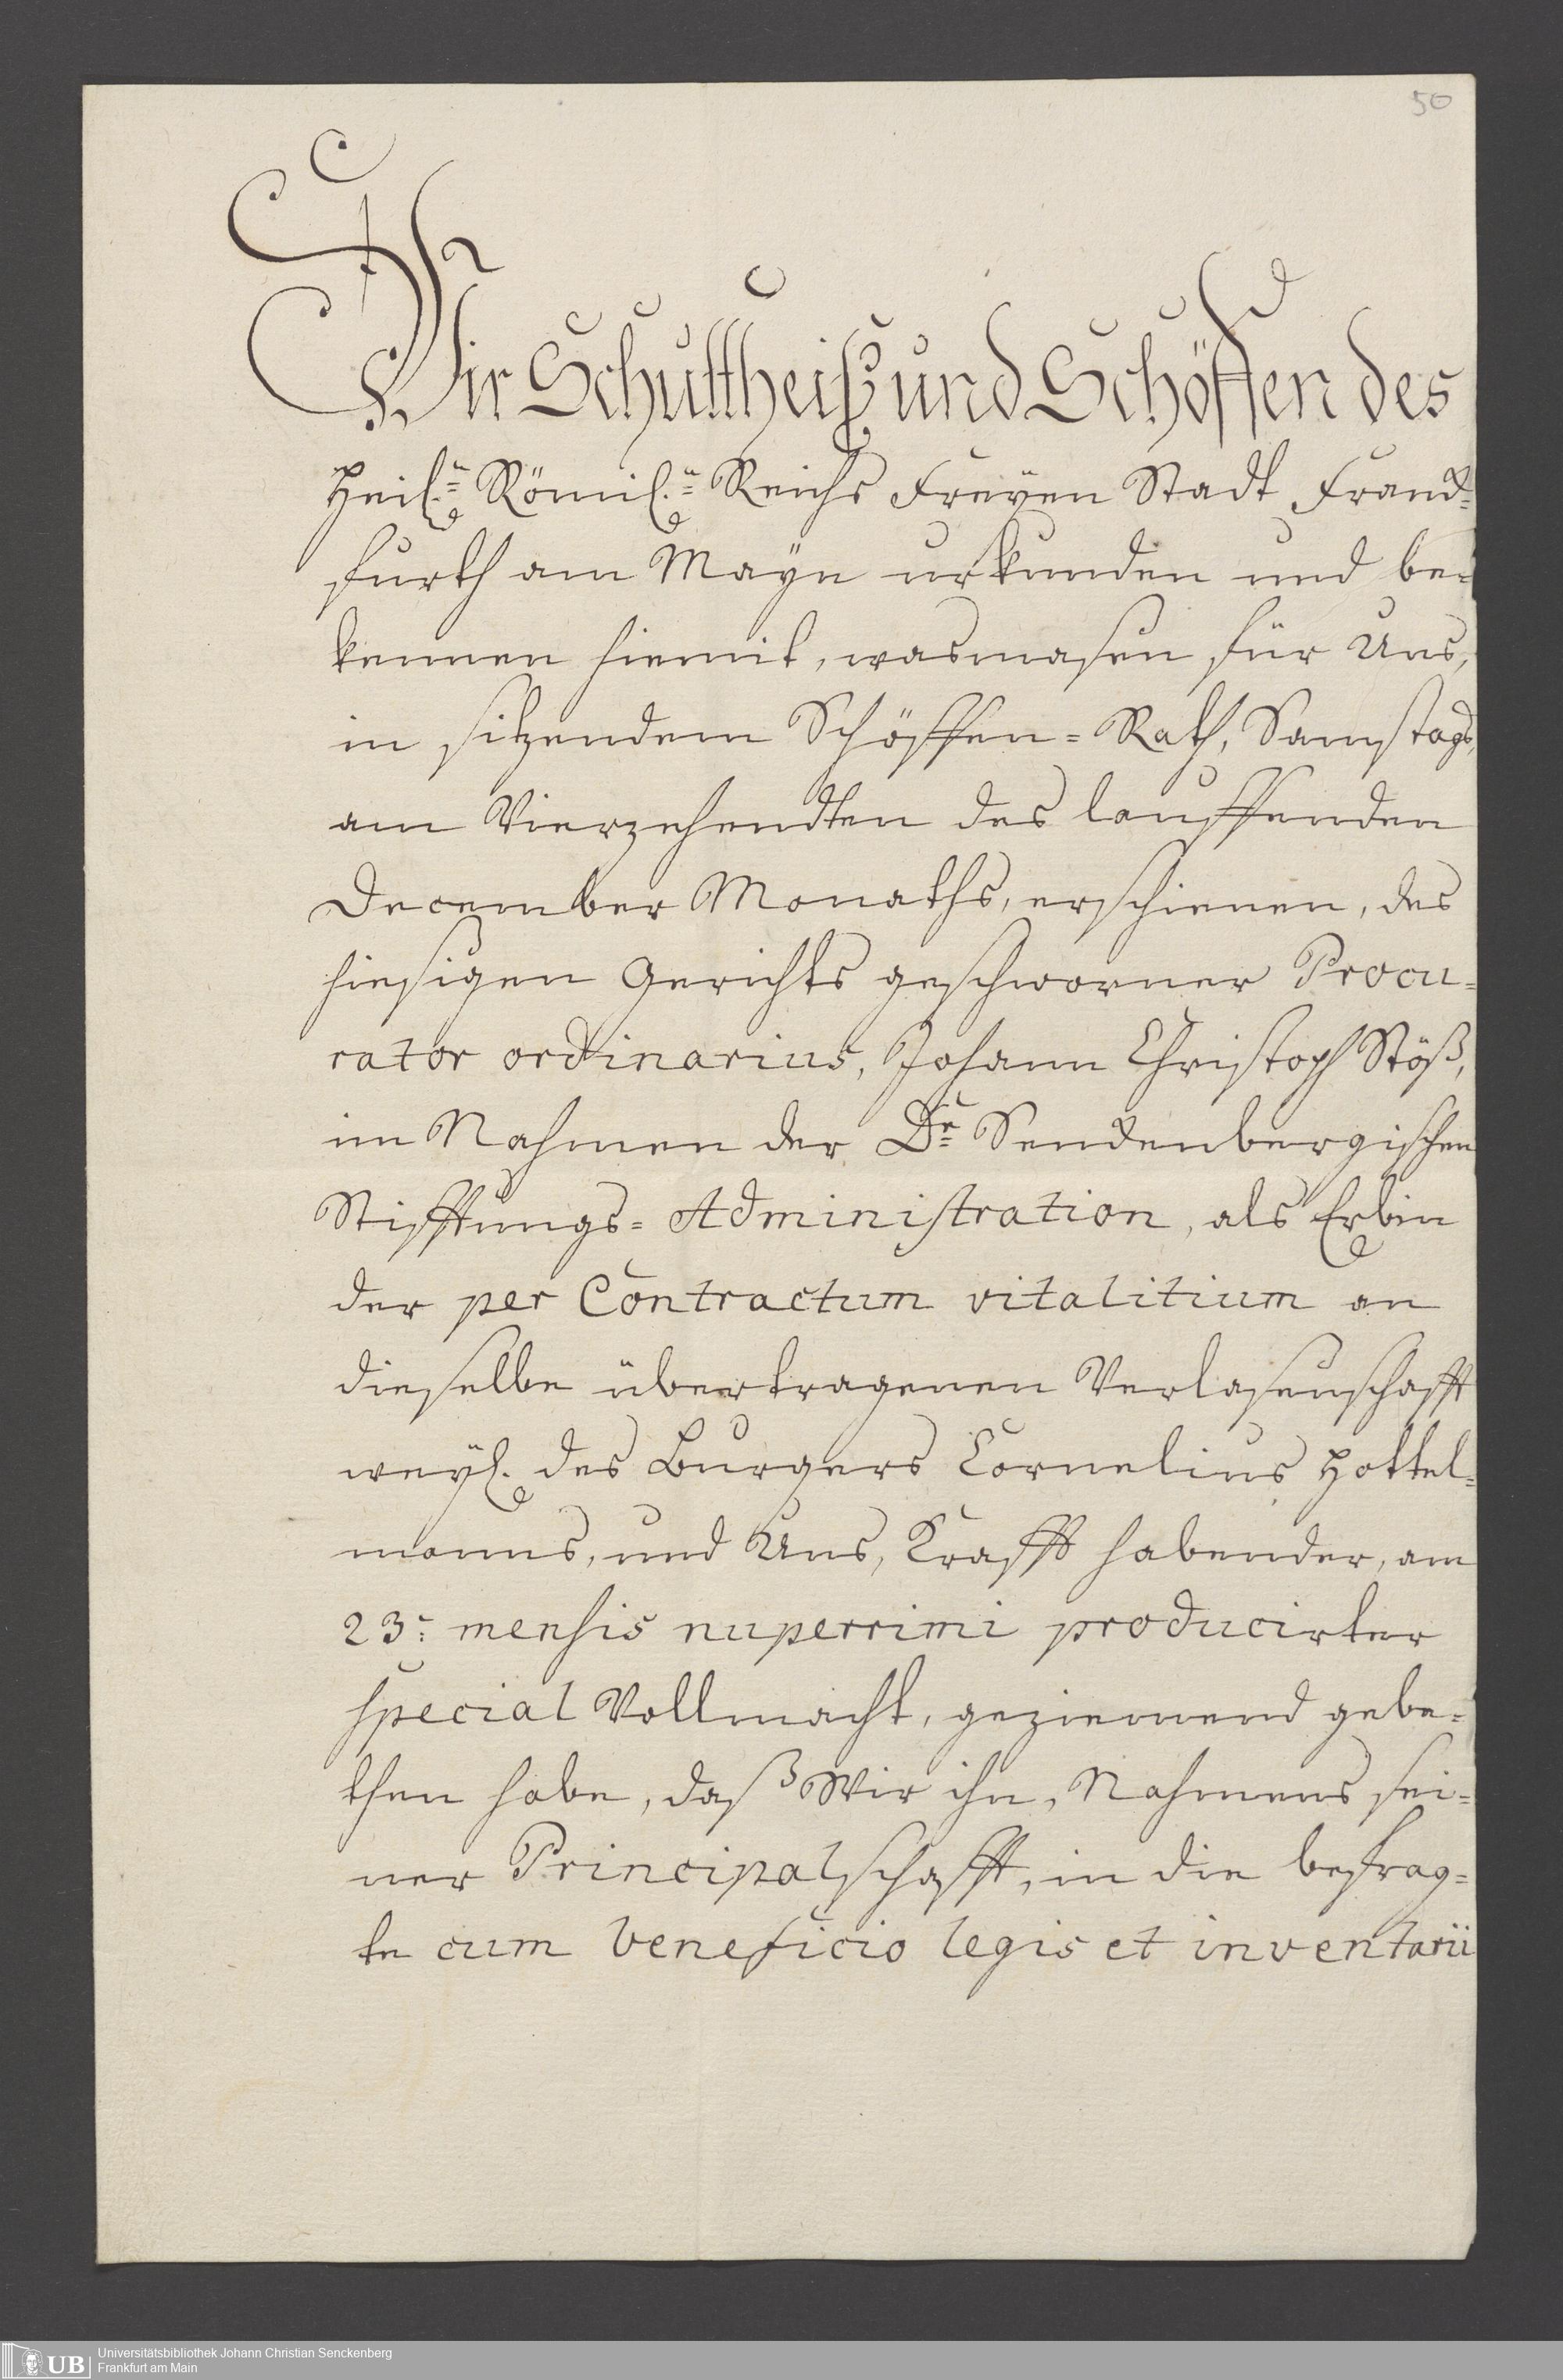 50
Wir Schultheiß und Schöffen des
Heil.n Römil.n Reichs Freyen Stadt Franck-
furth am Mayn urkunden und be-
kennen hiemit, wasmasen für Uns,
in sitzendem Schöffen-Rath, Samstags,
am Vierzehendten des lauffenden
December Monaths, erschienen, des
hiesigen Gerichts geschworner Procu-
rator ordinarius, Johann Christoph Stöß,
im Nahmen der Dr. Senckenbergischen
Stifftungs-Administration, als Erbin
der per Contractum vitalitium an
dieselbe übertragenen Verlasenschafft
weyl. des Burgers Cornelius Hottel-
manns, und Uns, Krafft habender, am
23: mensis nuperrimi producirter
special Vollmacht, geziemend gebe-
then habe, daß Wir ihn, Nahmens sei-
ner Principalschafft, in die befrag-
te cum beneficio legis et inventarii
UB
Universitätsbibliothek Johann Christian Senckenberg
Frankfurt am Main